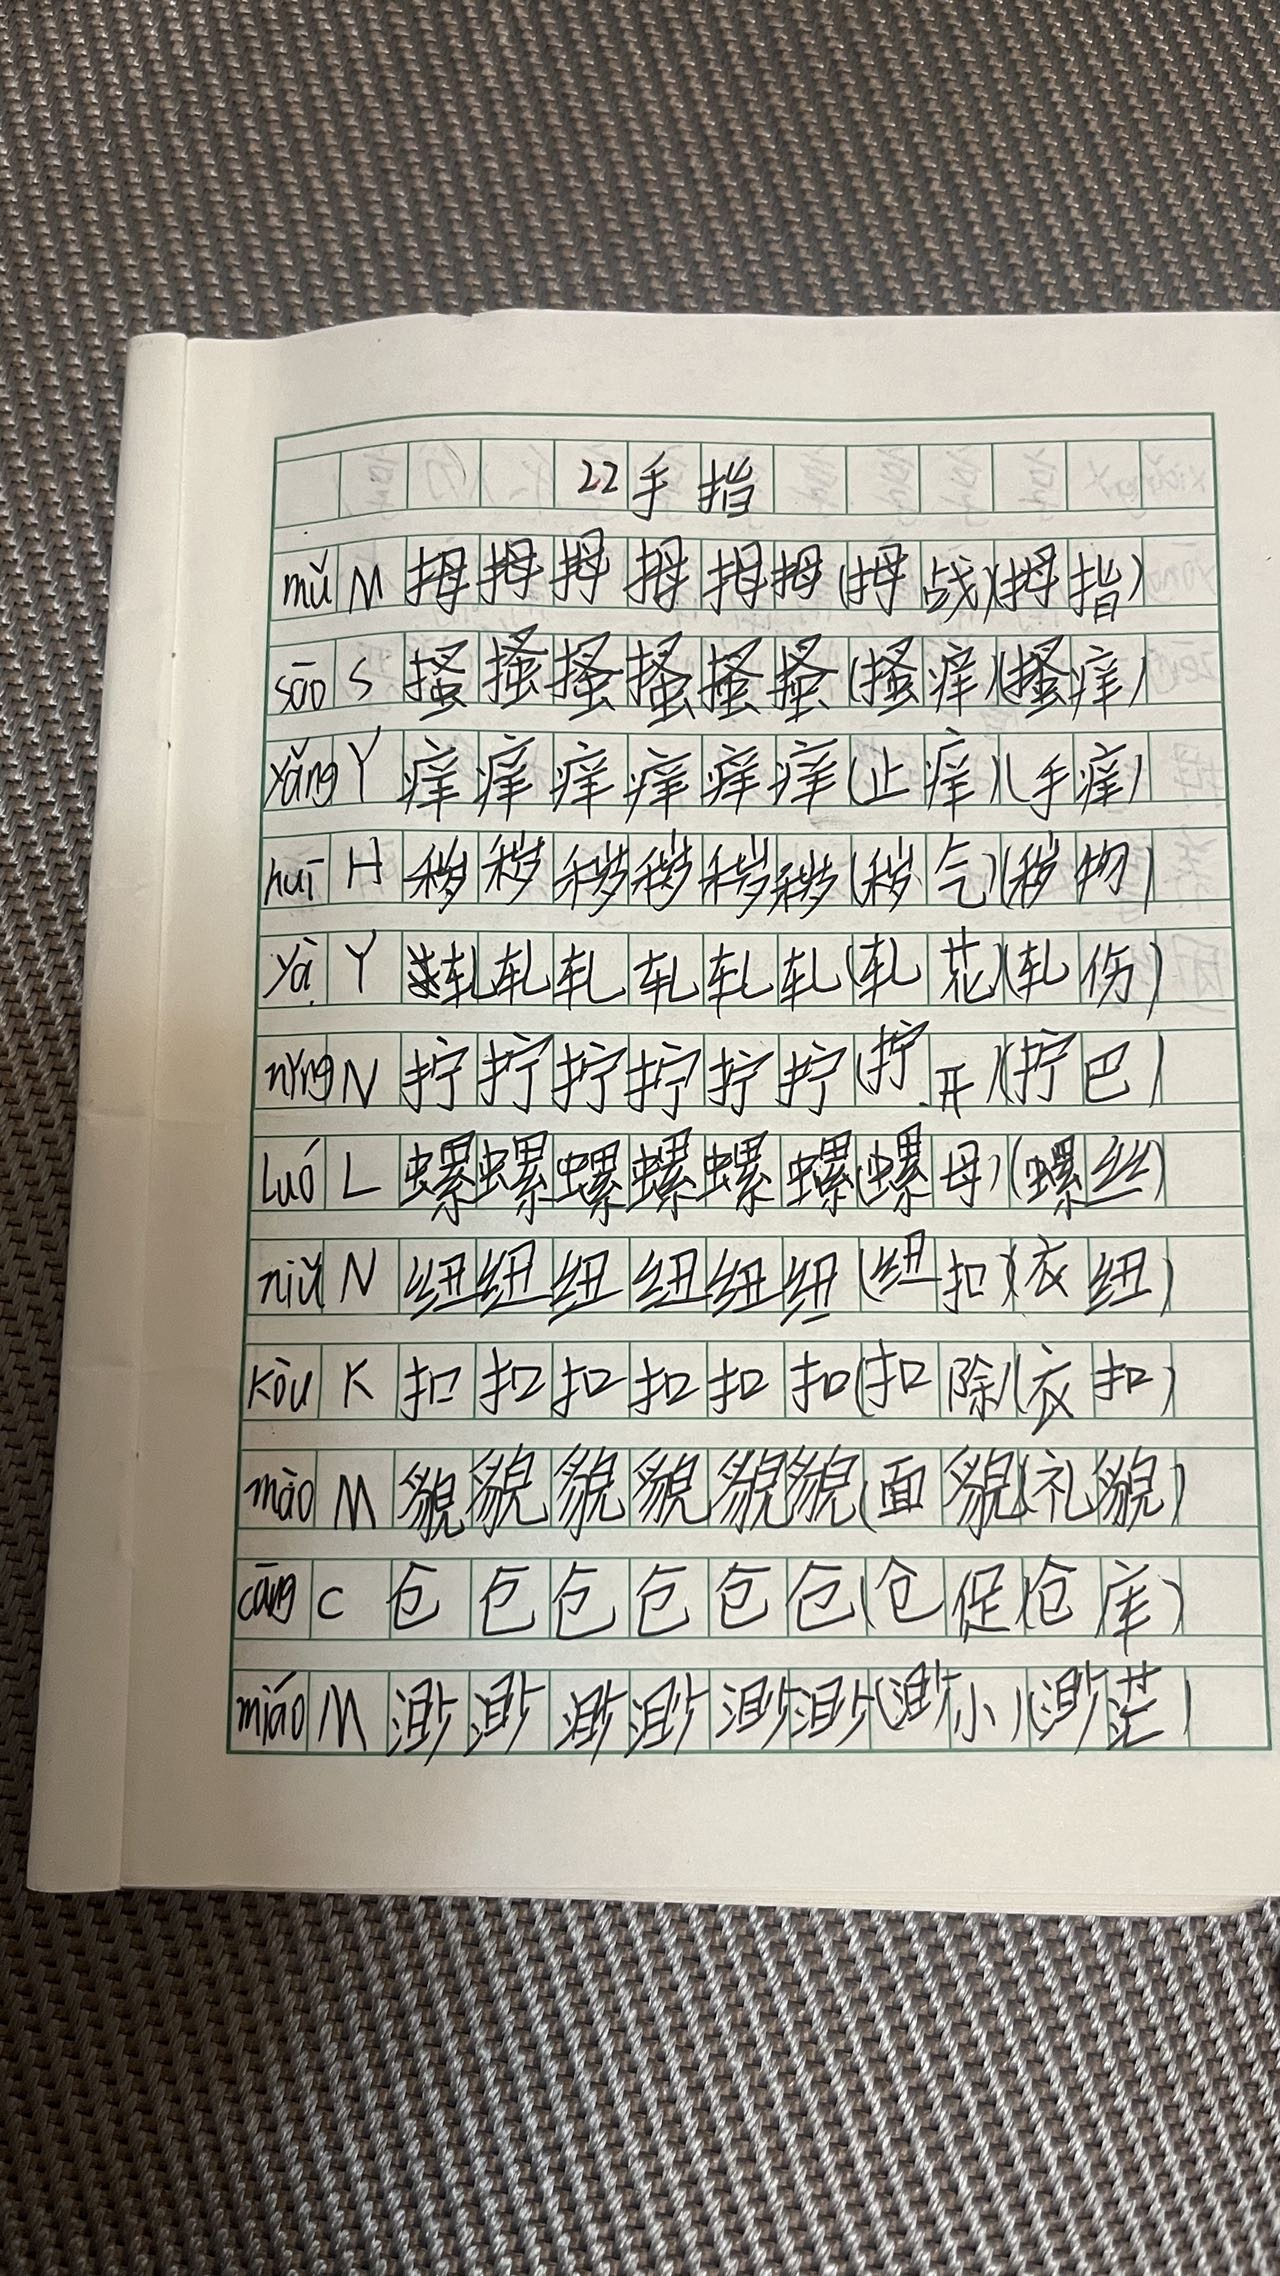 22手指
mǔ M 拇拇拇拇拇拇(拇战)(拇指)
sāo S 搔搔搔搔搔搔(搔痒)(搔痒)
yǎng Y 痒痒痒痒痒痒(止痒)(手痒)
huī H 秽秽秽秽秽秽(秽气)(秽物)
yà Y 轧轧轧轧轧轧(轧花)(轧伤)
nǐng N 拧拧拧拧拧拧(拧开)(拧巴)
Luó L 螺螺螺螺螺螺(螺母)(螺丝)
niǔ N 纽纽纽纽纽纽(纽扣)(衣纽)
Kòu K 扣扣扣扣扣扣(扣除)(衣扣)
mào M 貌貌貌貌貌貌(面貌)(礼貌)
cāng C 仓仓仓仓仓仓(仓促)(仓库)
miáo M 渺渺渺渺渺渺(渺小)(渺茫)